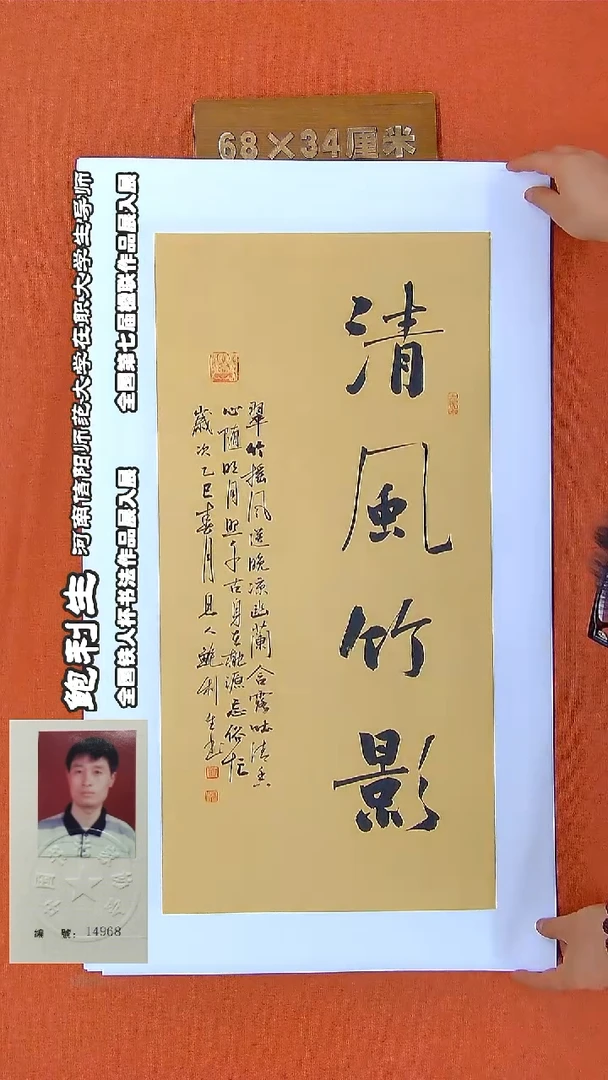 68×34厘米
鲍利生 河南信阳师范大学在职大学生导师
全国第七届楹联作品展入展
全国侠人杯书法作品展入展
清風竹影
翠竹摇風送晚凉幽蘭含露吐清香
心随明月照千古身在桃源忘俗忙
歲次乙巳春月息人鮑利生書
編 號: 14968